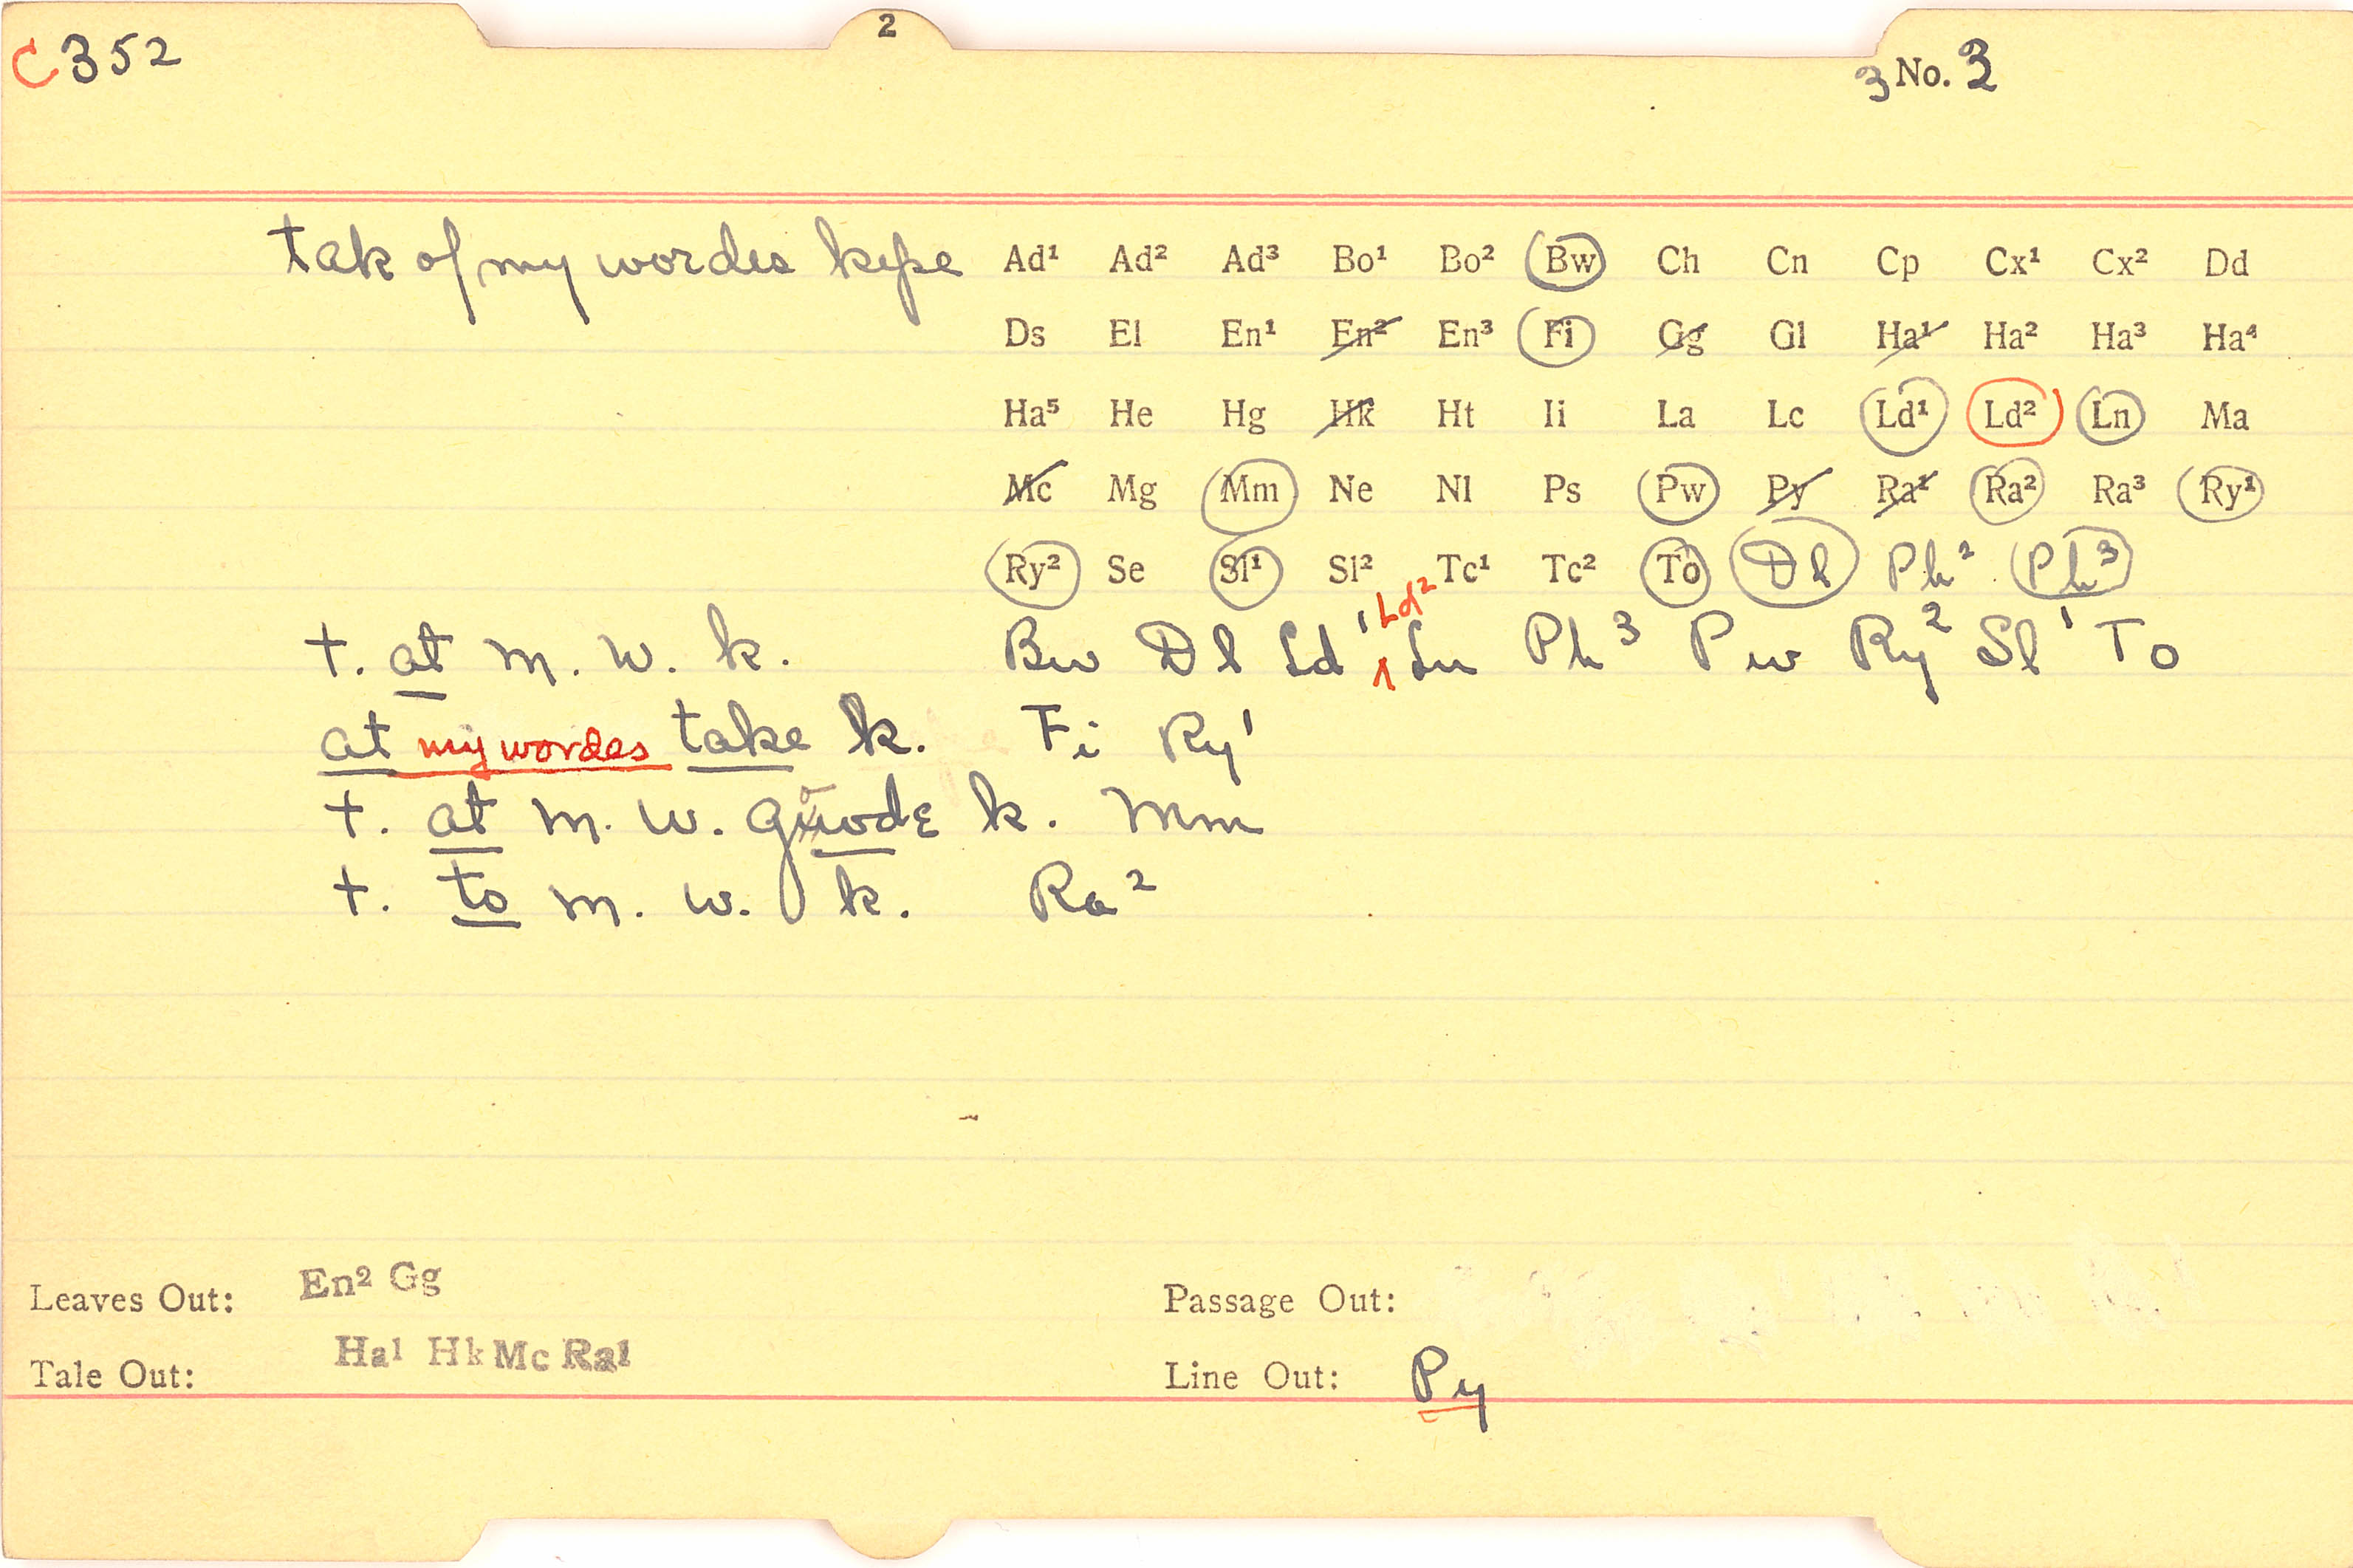 2
C352 3 No. 3
tak of my wordes kepe Ad¹ Ad² Ad³ Bo¹ Bo² Bw Ch Cn Cp Cx¹ Cx² Dd
Ds El En¹ En² En³ Fi Gg Gl Ha¹ Ha² Ha³ Ha⁴
Ha⁵ He Hg Hk Ht Ii La Lc Ld¹ Ld² Ln Ma
Mc Mg Mm Ne Nl Ps Pw Py Ra¹ Ra² Ra³ Ry¹
Ry² Se Sl¹ Sl² Tc¹ Tc² To Dl Ph² Ph³
t. at m. w. k. Bw Dl Ld¹ Ld² Ln Ph³ Pw Ry² Sl¹ To
at my wordes take k. Fi Ry¹
t. at m. w. k. Mm
t. to m. w. k. Ra²
Leaves Out: En² Gg Passage Out:
Tale Out: Ha¹ Hk Mc Ra¹ Line Out: Py